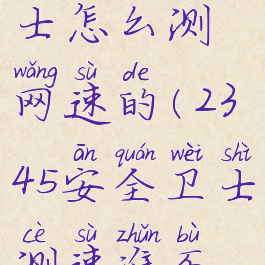 士怎么测
wǎng sù de
网速的(23
ān quán wèi shì
45安全卫士
cè sù zhǔn bù
测速准不